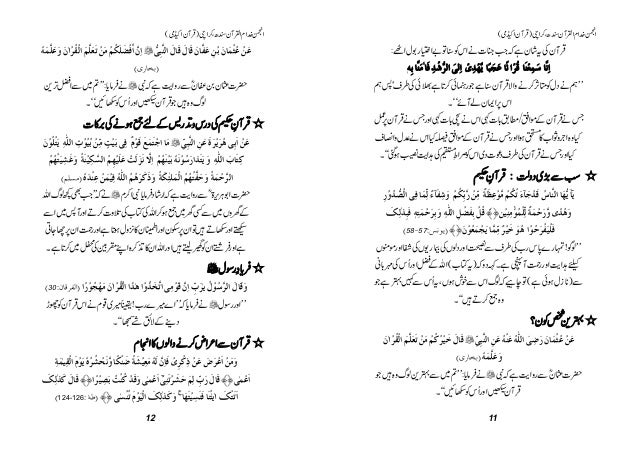 انجمن خدام القرآن سندھ کراچی (قرآن اکیڈمی)
قرآن کی یہ شان ہے کہ جب جنات نے اس کو سنا تو بے اختیار بول اٹھے:
اِنَّا سَمِعْنَا قُرْاٰنًا عَجَبًا یَّهْدِیْٓ اِلَی الرُّشْدِ فَاٰمَنَّا بِهٖ
”ہم نے دل کو متاثر کرنے والا قرآن سنا ہے جو رہنمائی کرتا ہے بھلائی کی طرف پس ہم
اس پر ایمان لے آئے“۔
جس نے قرآن کے موافق/مطابق بات کہی اس نے سچی بات کہی اور جس نے قرآن پر عمل
کیا وہ اجر و ثواب کا مستحق ہوا اور جس نے قرآن کے موافق فیصلہ کیا اس نے عدل و انصاف
کیا اور جس نے قرآن کی طرف دعوت دی اس کو صراطِ مستقیم کی ہدایت نصیب ہوگئی۔
★ سب سے بڑی دولت : قرآنِ حکیم
یٰٓاَیُّهَا النَّاسُ قَدْ جَآءَتْكُمْ مَّوْعِظَةٌ مِّنْ رَّبِّكُمْ وَشِفَآءٌ لِّمَا فِی الصُّدُوْرِ
وَهُدًی وَّرَحْمَةٌ لِّلْمُؤْمِنِیْنَ ﴿﴾ قُلْ بِفَضْلِ اللّٰهِ وَبِرَحْمَتِهٖ فَبِذٰلِكَ
فَلْیَفْرَحُوْا هُوَ خَیْرٌ مِّمَّا یَجْمَعُوْنَ ﴿﴾ (یونس:57-58)
”لوگو! تمہارے پاس رب کی طرف سے نصیحت اور دلوں کی بیماریوں کی شفا اور مومنوں
کیلئے ہدایت اور رحمت آپہنچی ہے۔ کہہ دو کہ (یہ کتاب) اللہ کے فضل اور اُس کی مہربانی
سے (نازل ہوئی ہے) تو چاہیے کہ لوگ اس سے خوش ہوں، یہ اُس سے کہیں بہتر ہے جو
وہ جمع کرتے ہیں“۔
★ بہترین شخص کون؟
عَنْ عُثْمَانَ رَضِیَ اللّٰهُ عَنْهُ عَنِ النَّبِیِّ ﷺ قَالَ خَیْرُكُمْ مَنْ تَعَلَّمَ الْقُرْاٰنَ
وَعَلَّمَهٗ (بخاری)
حضرت عثمانؓ سے روایت ہے کہ نبی ﷺ نے فرمایا: ”تم میں سے بہترین لوگ وہ ہیں جو
قرآن سیکھیں اور اُس کو سکھائیں“۔
11
انجمن خدام القرآن سندھ کراچی (قرآن اکیڈمی)
عَنْ عُثْمَانَ بْنِ عَفَّانَ قَالَ قَالَ النَّبِیُّ ﷺ اِنَّ اَفْضَلَكُمْ مَنْ تَعَلَّمَ الْقُرْاٰنَ وَعَلَّمَهٗ
(بخاری)
حضرت عثمان بن عفانؓ سے روایت ہے کہ نبی ﷺ نے فرمایا: ”تم میں سے افضل ترین
لوگ وہ ہیں جو قرآن سیکھیں اور اُس کو سکھائیں“۔
★ قرآنِ حکیم کی درس و تدریس کے لئے جمع ہونے کی برکات
عَنْ اَبِیْ هُرَیْرَةَ عَنِ النَّبِیِّ ﷺ مَا اجْتَمَعَ قَوْمٌ فِیْ بَیْتٍ مِّنْ بُیُوْتِ اللّٰهِ یَتْلُوْنَ
كِتَابَ اللّٰهِ وَ یَتَدَارَسُوْنَهٗ بَیْنَهُمْ اِلَّا نَزَلَتْ عَلَیْهِمُ السَّكِیْنَةُ وَغَشِیَتْهُمُ
الرَّحْمَةُ وَ حَفَّتْهُمُ الْمَلٰٓئِكَةُ وَ ذَكَرَهُمُ اللّٰهُ فِیْمَنْ عِنْدَهٗ (مسلم)
حضرت ابو ہریرہؓ سے روایت ہے کہ ارشاد فرمایا نبی اکرم ﷺ نے کہ ”جب بھی کچھ لوگ اللہ
کے گھروں میں سے کسی گھر میں جمع ہو کر اللہ کی کتاب کی تلاوت کرتے اور آپس میں اسے
سیکھتے اور سکھاتے ہیں تو ان پر سکون اور اطمینان کا نزول ہوتا ہے اور رحمت ان پر چھا جاتی
ہے اور فرشتے ان کو گھیر لیتے ہیں اور اللہ ان کا تذکرہ اپنے مقربین کی محفل میں کرتا ہے۔
★ فریادِ رسول ﷺ
وَقَالَ الرَّسُوْلُ یٰرَبِّ اِنَّ قَوْمِی اتَّخَذُوْا هٰذَا الْقُرْاٰنَ مَهْجُوْرًا (الفرقان:30)
”اور رسول ﷺ نے فرمایا کہ ”اے میرے رب! یقیناً میری قوم نے اس قرآن کو چھوڑ
دینے کے لائق شے سمجھا“۔
★ قرآن سے اعراض کرنے والوں کا انجام
وَمَنْ اَعْرَضَ عَنْ ذِكْرِیْ فَاِنَّ لَهٗ مَعِیْشَةً ضَنْكًا وَّنَحْشُرُهٗ یَوْمَ الْقِیٰمَةِ
اَعْمٰی ﴿﴾ قَالَ رَبِّ لِمَ حَشَرْتَنِیْٓ اَعْمٰی وَقَدْ كُنْتُ بَصِیْرًا ﴿﴾ قَالَ كَذٰلِكَ
اَتَتْكَ اٰیٰتُنَا فَنَسِیْتَهَا ۚ وَكَذٰلِكَ الْیَوْمَ تُنْسٰی ﴿﴾ (طہٰ:124-126)
12